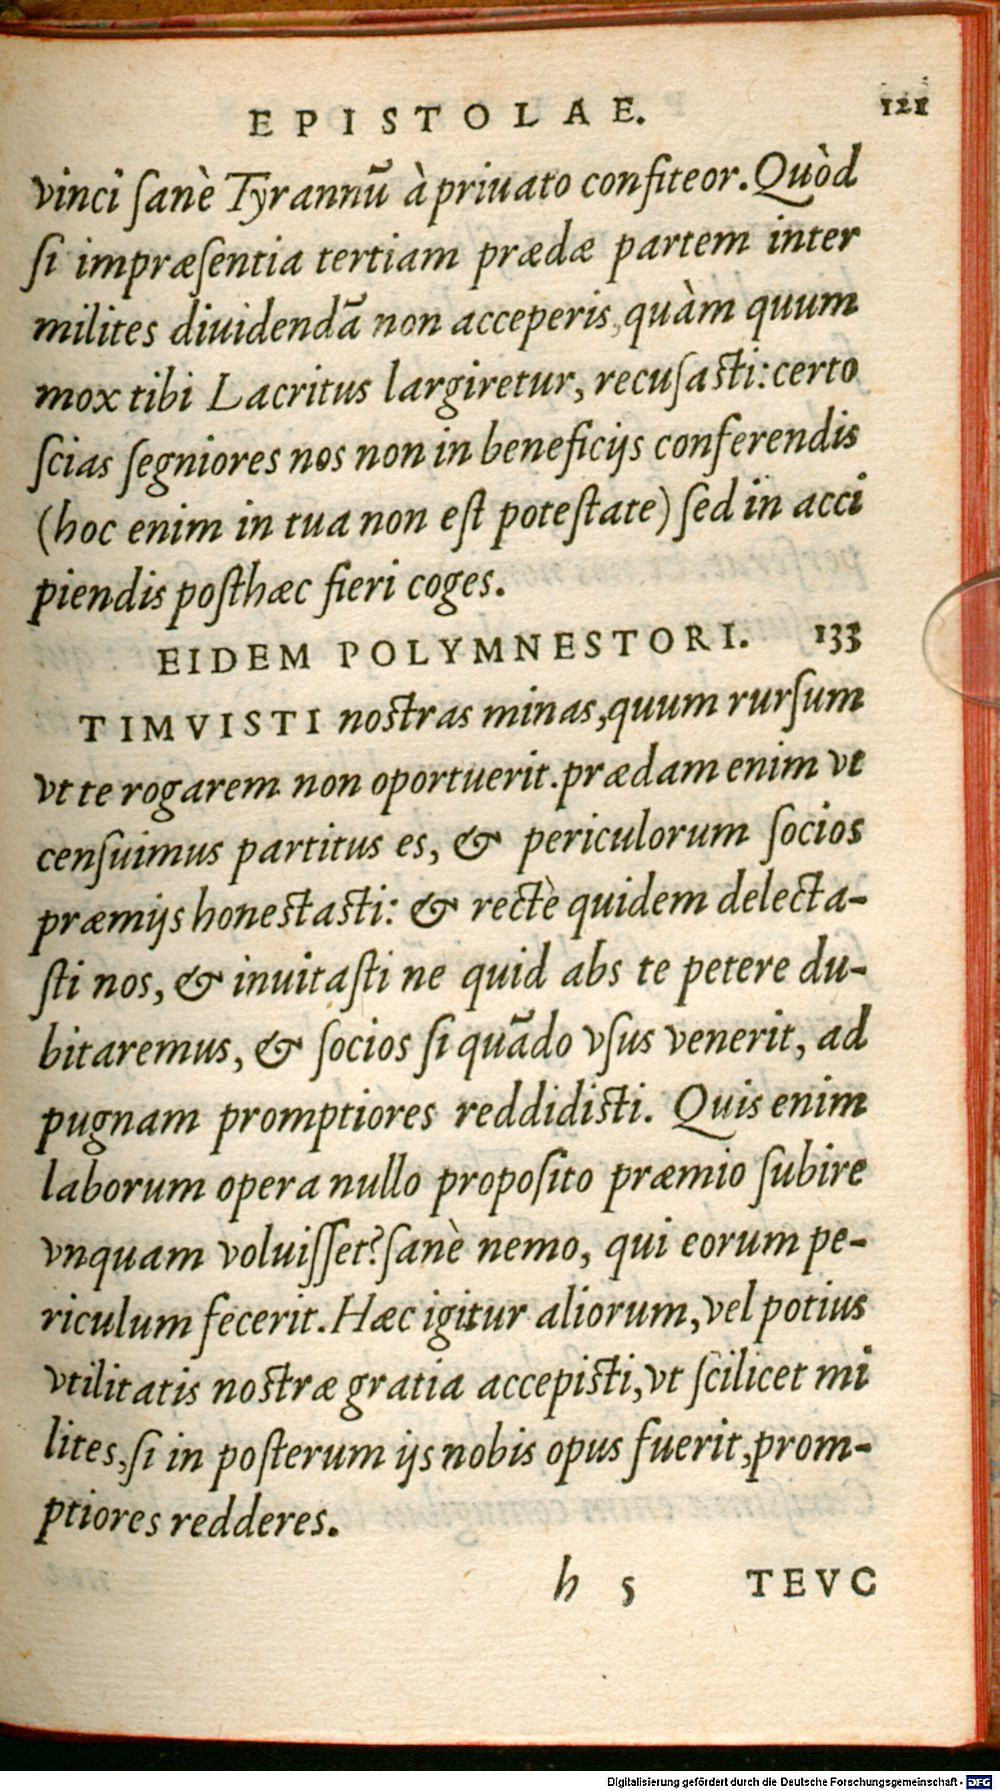 EPISTOLAE. 121
vinci ſanè Tyrannū à priuato confiteor. Quòd
ſi impræſentia tertiam prædæ partem inter
milites diuidendā non acceperis, quàm quum
mox tibi Lacritus largiretur, recuſaſti: certo
ſcias ſegniores nos non in beneficijs conferendis
(hoc enim in tua non eſt poteſtate) ſed in acci
piendis poſthæc fieri coges.
EIDEM POLYMNESTORI. 133
TIMVISTI noſtras minas, quum rurſum
vt te rogarem non oportuerit. prædam enim vt
cenſuimus partitus es, & periculorum ſocios
præmijs honeſtaſti: & rectè quidem delecta-
ſti nos, & inuitaſti ne quid abs te petere du-
bitaremus, & ſocios ſi quādo vſus venerit, ad
pugnam promptiores reddidiſti. Quis enim
laborum opera nullo propoſito præmio ſubire
vnquam voluiſſet? ſanè nemo, qui eorum pe-
riculum fecerit. Hæc igitur aliorum, vel potius
vtilitatis noſtræ gratia accepiſti, vt ſcilicet mi
lites, ſi in poſterum ijs nobis opus fuerit, prom-
ptiores redderes.
h 5 TEVC
Digitalisierung gefördert durch die Deutsche Forschungsgemeinschaft - DFG